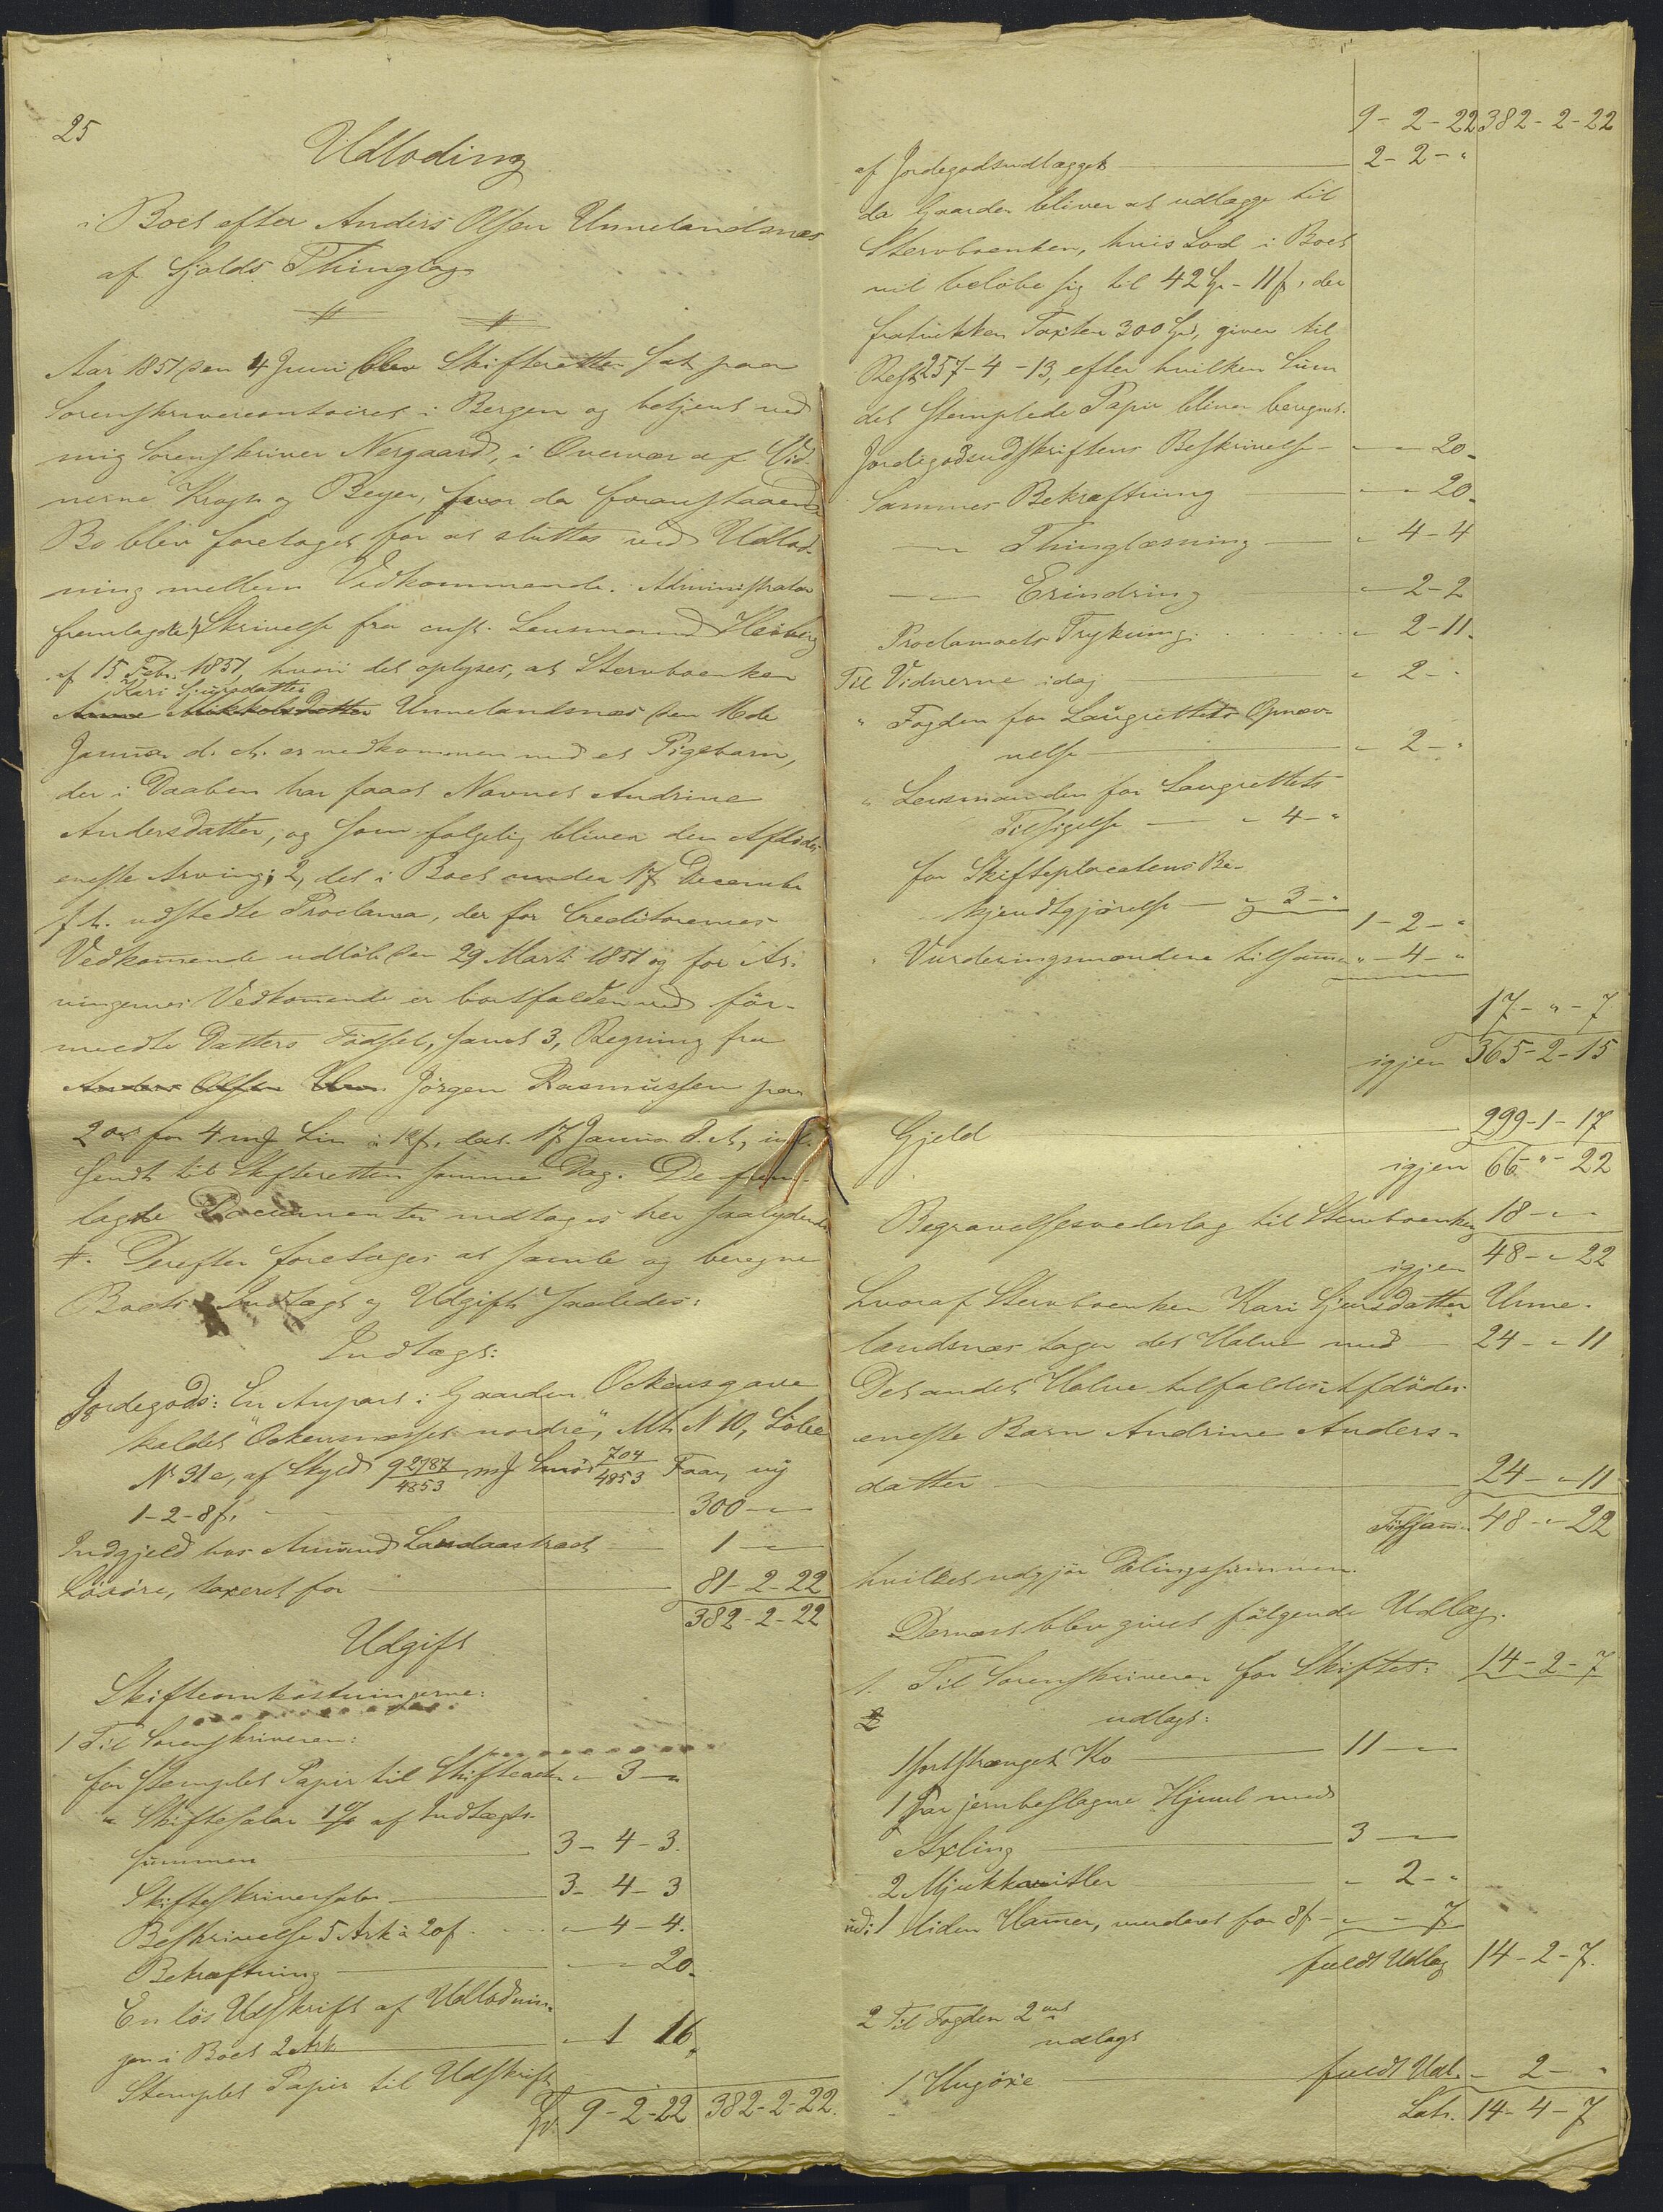 25
Udlodning
i Boet efter Anders Olsen Unnelandsnæs
af Fjelds Thinglag
Aar 1851 den 4 Juni blev Skifteretten sat paa
Sorenskrivercontoiret i Bergen og betjent ved
mig Sorenskriver Nergaard, i Overvær af Vid-
nerne Krogh og Beyer, hvor da foranstaaende
Bo blev foretaget for at sluttes ved Udlod-
ning mellem Vedkommende. Administrator
fremlagde 1, Skrivelse fra const. Lensmand
af 15 Febr. 1851, hvori det oplyses, at Stervboenken
Kari Sjursdatter
Anne Mikkelsdatter Unnelandsnæs den 16de
Januar d. A. er nedkommen med et Pigebarn,
der i Daaben har faaet Navnet Andrine
Andersdatter, og som følgelig bliver den Afdødes
eneste Arving; 2, det i Boet under 17 December
f. A. udstedte Proclama, der for Creditorernes
Vedkommende udløb den 29 Marti 1851 og for Ar-
vingernes Vedkommende er bortfalden ved för-
meldte Datters Födsel, samt 3, Regning fra
Anders Olsen Jörgen Rasmussen paa
2 ort for 4 mk Lin à 12 s, dat. 17 Januar d. A., ind-
sendt til Skifteretten samme Dag. De frem-
lagde Documenter indtages her saalydende
#. Derefter foretoges at samle og beregne
Boets Indtægt og Udgift saaledes:
Indtægt:
Jordegods: En Anpart i Gaarden Ockensgave
kaldet "Ockensnæsset nordre", Mt. N 10, Löbe
No 31 e, af Skyld 9 2787/4853 mk Smör 704/4853 Faar, ny
1-2-8 s, 300 - -
Indgjeld hos Amund Landaastræet 1 - -
Lösöre, taxeret for 81-2-22
382-2-22
Udgift
Skifteomkostningerne:
1 Til Sorenskriveren:
for stemplet Papir til Skifteacten " 3 - "
" Skiftesalar 1 % af Indtægts-
summen 3-4-3.
Skifteskriversalar 3-4-3
Beskrivelse 5 Ark à 20 s " - 4-4.
Bekræftning " - " 20.
En lös Udskrift af Udlodnin-
gen i Boet 2 Ark " 1 16
Stemplet Papir til Udskrift
9-2-22 382-2-22.
9-2-22 382-2-22
af Jordegodsudlægget 2-2-"
da Gaarden bliver at udlægge til
Stervboenken, hvis Lod i Boet
vil beløbe sig til 42 Sp - 11 s, der
fratrukken Taxten 300 Spd, giver til
Rest 257-4-13, efter hvilken Sum
det stemplede Papir bliver beregnet.
Jordegodsudskriftens Beskrivelse " - " 20.
Sammes Bekræftning " - " 20.
" Thinglæsning " 4-4
" Erindring " 2-2
Proclamaets Trykning " 2-11.
Til Vidnerne idag " 2-"
" Fogden for Laugrettets Opnæv-
nelse " 2-"
" Lensmanden for Laugrettets
Tilsigelse " 4-"
for Skifteplacatens Be-
kjendtgjörelse " 3-" 1-2-"
" Vurderingsmændene tilsammen " - 4 - "
17-"-7
igjen 365-2-15
Gjeld 299-1-17
igjen 66-"-22
Begravelsesvederlag til Stervboenken 18 - " -
igjen 48-"-22
hvoraf Stervboenken Kari Sjursdatter Unne-
landsnæs tager det Halve med 24-"-11
Det andet Halve tilfalder Afdödes
eneste Barn Andrine Anders-
datter 24-"-11
Tilsammen 48-"-22
hvilket udgjør Delingssummen.
Dernæst blev givet fölgende Udlæg.
1. Til Sorenskriveren for Skiftet: 14-2-7
udlagt:
1 sortskranget Ko 11 - "
1 Par jernbeslagne Hjuul med
Axling 3 - "
2 Mjukkavitler " 2-"
udi 1 liden Hammer, vurderet for 8 s " - " 7
fuldt Udlæg 14-2-7.
2 Til Fogden 2 ort
udlagt
1 Hugöxe fuldt Udl. " 2- "
Lat. 14-4-7